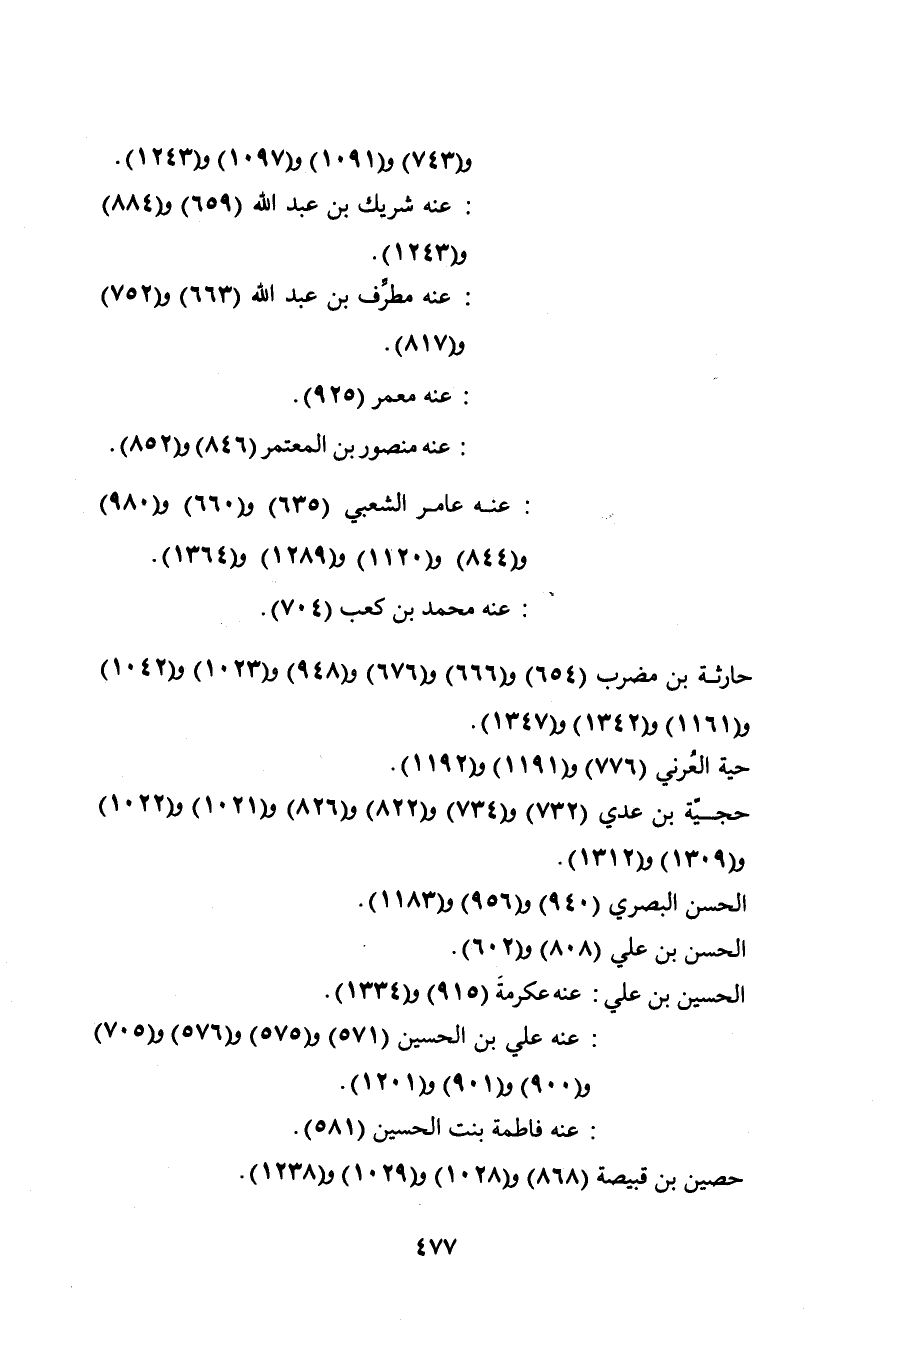 و(٧٤٣) و(١٠٩١) و(١٠٩٧) و(١٢٤٣).
: عنه شريك بن عبد الله (٦٥٩) و(٨٨٤)
و(١٢٤٣).
: عنه مطرِّف بن عبد الله (٦٦٣) و(٧٥٢)
و(٨١٧).
: عنه معمر (٩٢٥).
: عنه منصور بن المعتمر (٨٤٦) و(٨٥٢).
: عنه عامر الشعبي (٦٣٥) و(٦٦٠) و(٩٨٠)
و(٨٤٤) و(١١٢٠) و(١٢٨٩) و(١٣٦٤).
: عنه محمد بن كعب (٧٠٤).
حارثة بن مضرب (٦٥٤) و(٦٦٦) و(٦٧٦) و(٩٤٨) و(١٠٢٣) و(١٠٤٢)
و(١١٦١) و(١٣٤٢) و(١٣٤٧).
حية العُرني (٧٧٦) و(١١٩١) و(١١٩٢).
حجيّة بن عدي (٧٣٢) و(٧٣٤) و(٨٢٢) و(٨٢٦) و(١٠٢١) و(١٠٢٢)
و(١٣٠٩) و(١٣١٢).
الحسن البصري (٩٤٠) و(٩٥٦) و(١١٨٣).
الحسن بن علي (٨٠٨) و(٦٠٢).
الحسين بن علي : عنه عكرمةَ (٩١٥) و(١٣٣٤).
: عنه علي بن الحسين (٥٧١) و(٥٧٥) و(٥٧٦) و(٧٠٥)
و(٩٠٠) و(٩٠١) و(١٢٠١).
: عنه فاطمة بنت الحسين (٥٨١).
حصين بن قبيصة (٨٦٨) و(١٠٢٨) و(١٠٢٩) و(١٢٣٨).
٤٧٧